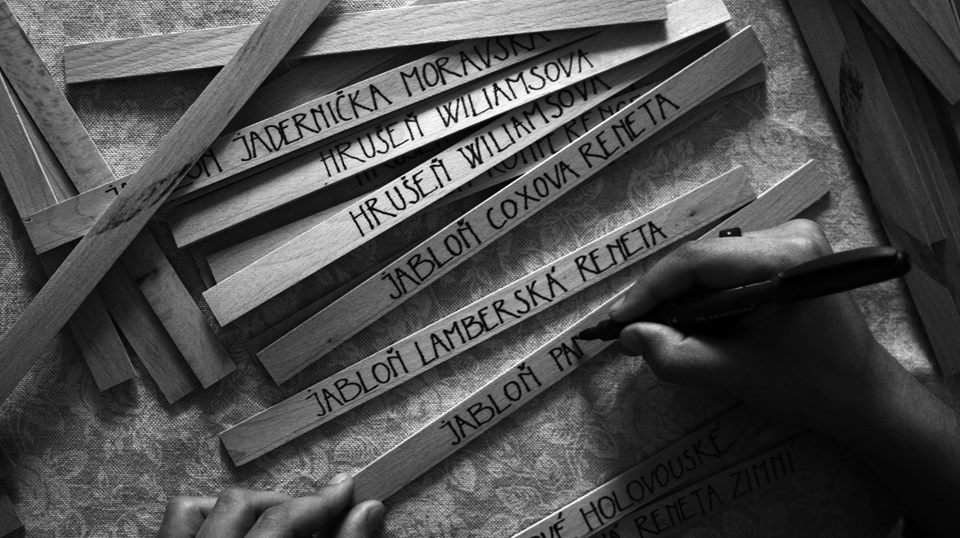 JADERNIČKA MORAVSKÁ
HRUŠEŇ WILIAMSOVA
HRUŠEŇ WILIAMSOVA
JABLOŇ COXOVA RENETA
JABLOŇ LAMBERSKÁ RENETA
JABLOŇ PAN
HOLOVOUSKÉ
RENETA ZIMNÍ